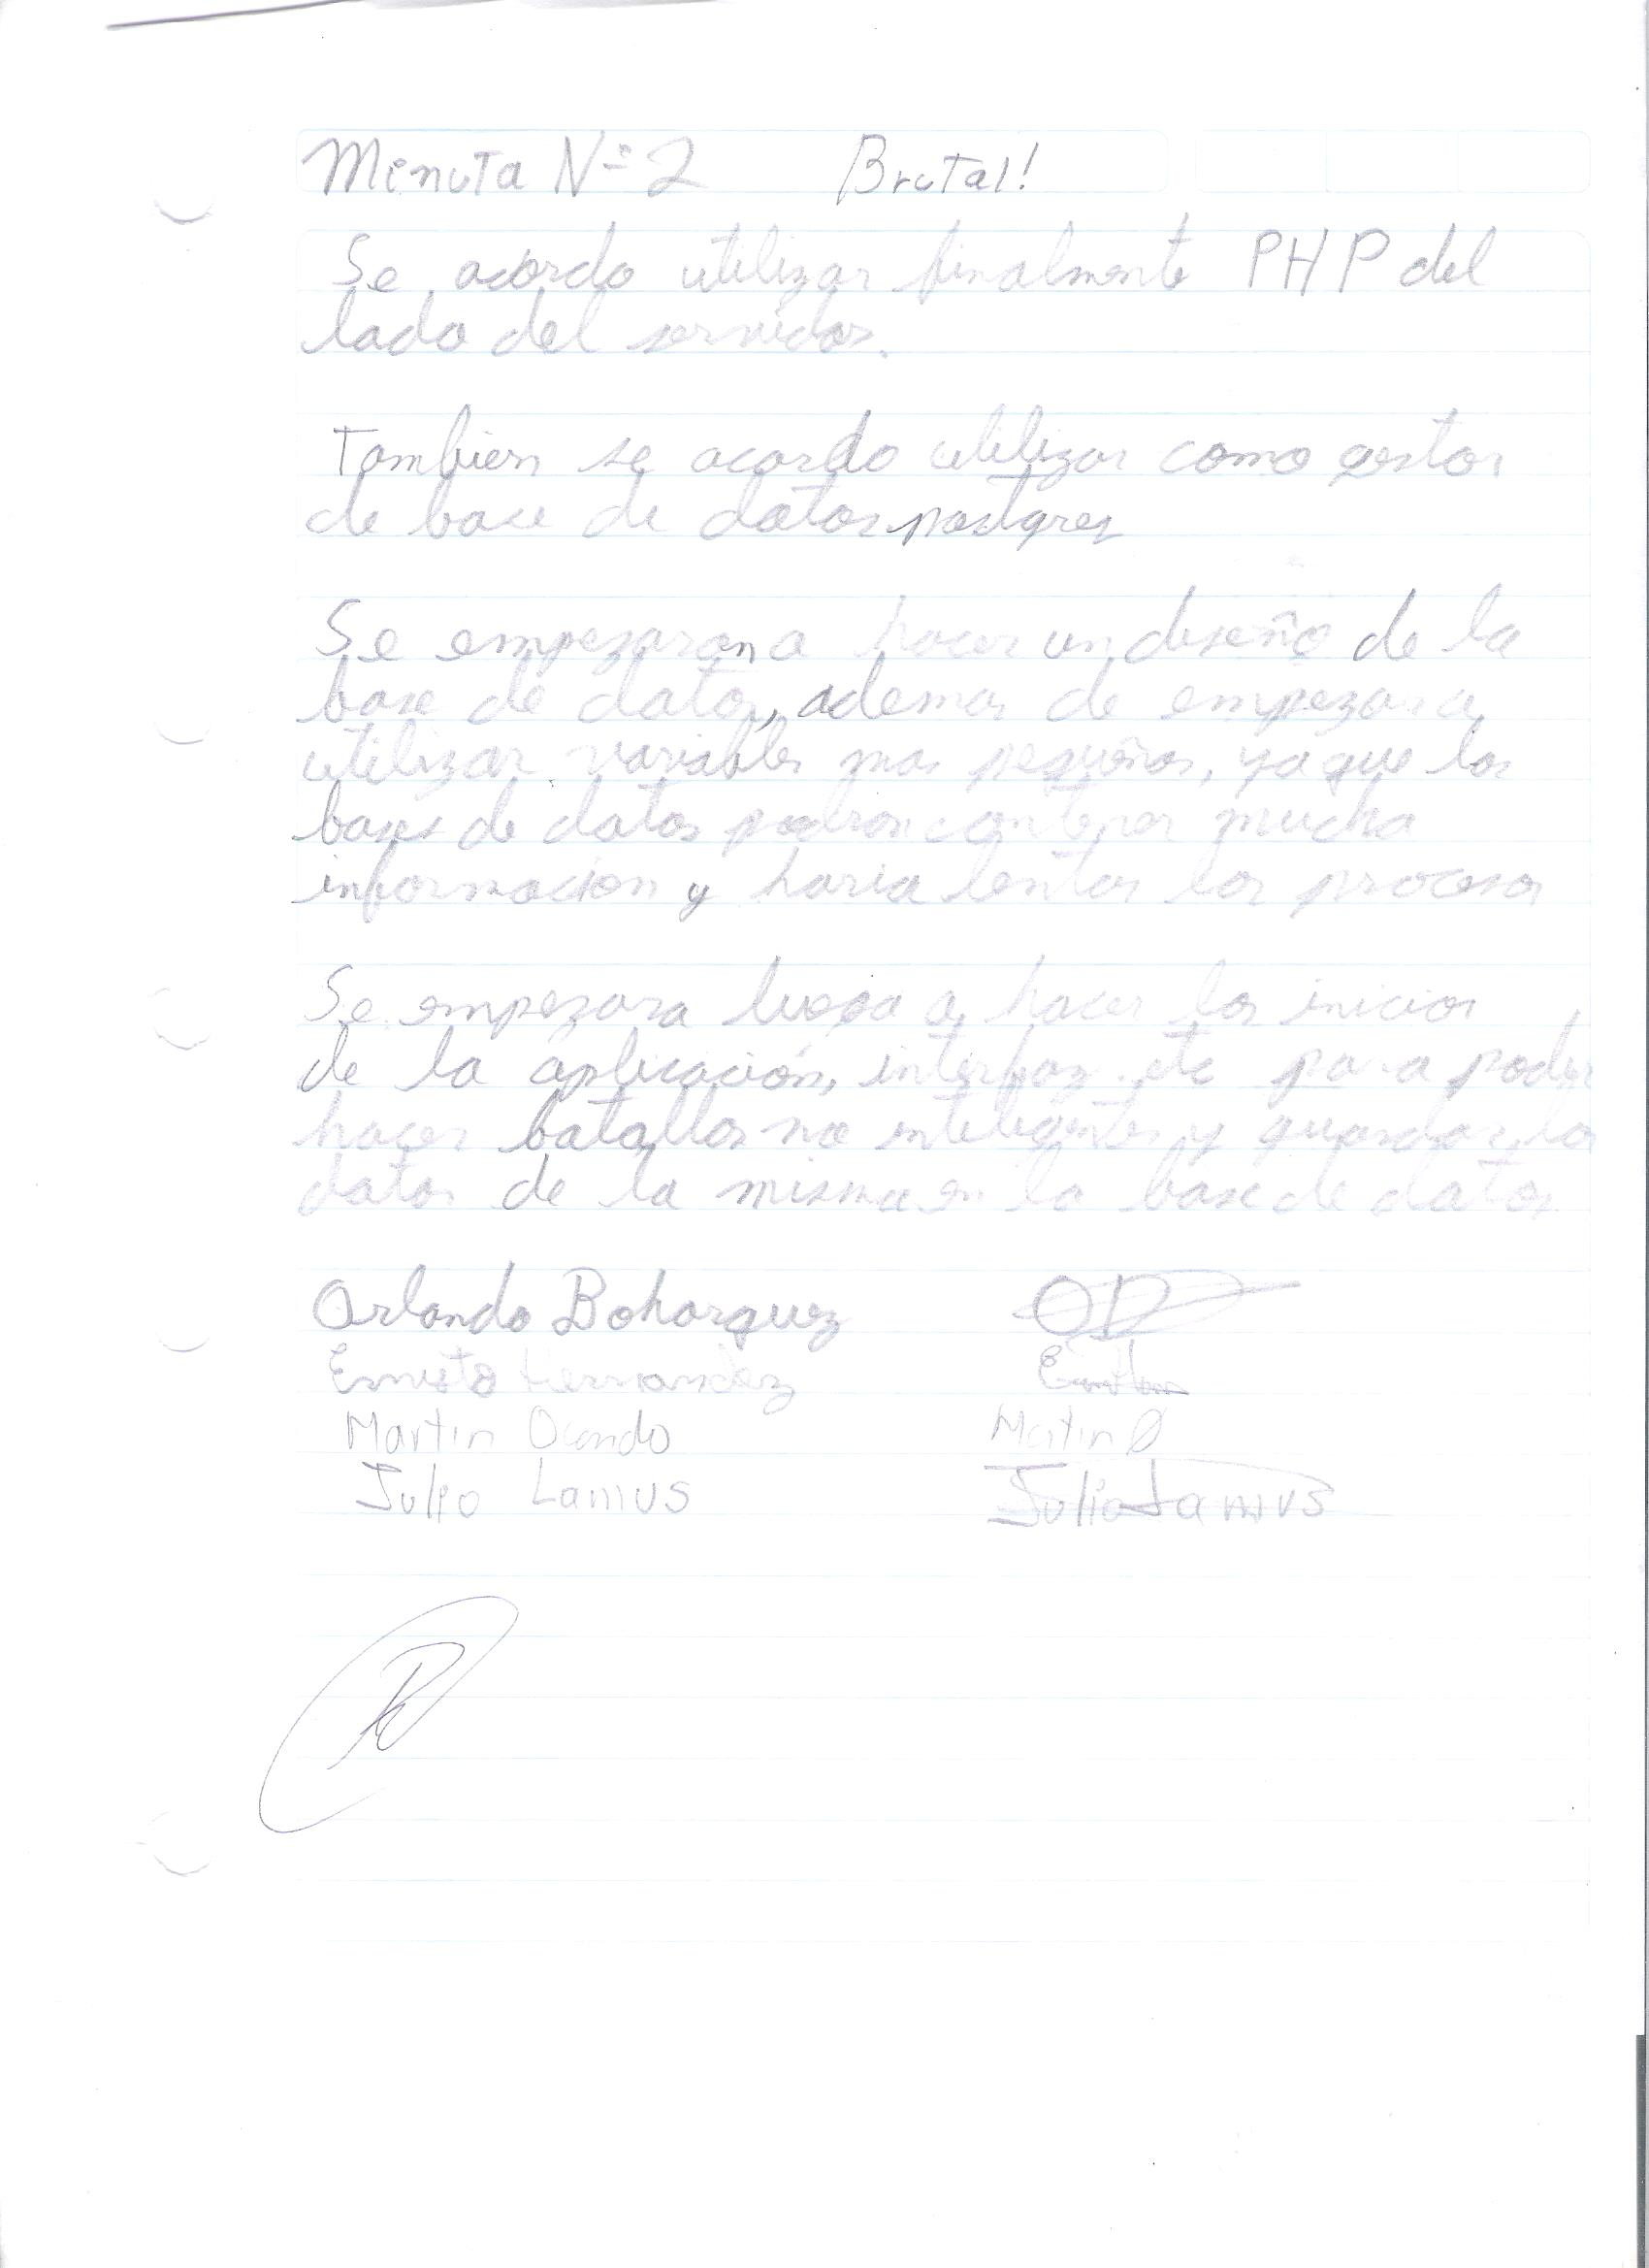 Minuta Nº 2 Brutal!
Se acordo utilizar finalmente PHP del
lado del servidor.
Tambien se acordo utilizar como gestor
de base de datos postgres
Se empezaran a hacer un diseño de la
base de datos, ademas de empezar a
utilizar variables mas pequeñas, ya que las
bases de datos podran contener mucha
informacion y haria lentos los procesos
Se empezara luego a hacer los inicios
de la aplicación, interfaz etc para poder
hacer batallas no inteligentes y guardar los
datos de la misma en la base de datos
Orlando Bohorquez OB
Ernesto Hernandez
Martin Ocando Martin O
Julio Lamus Julio Lamus